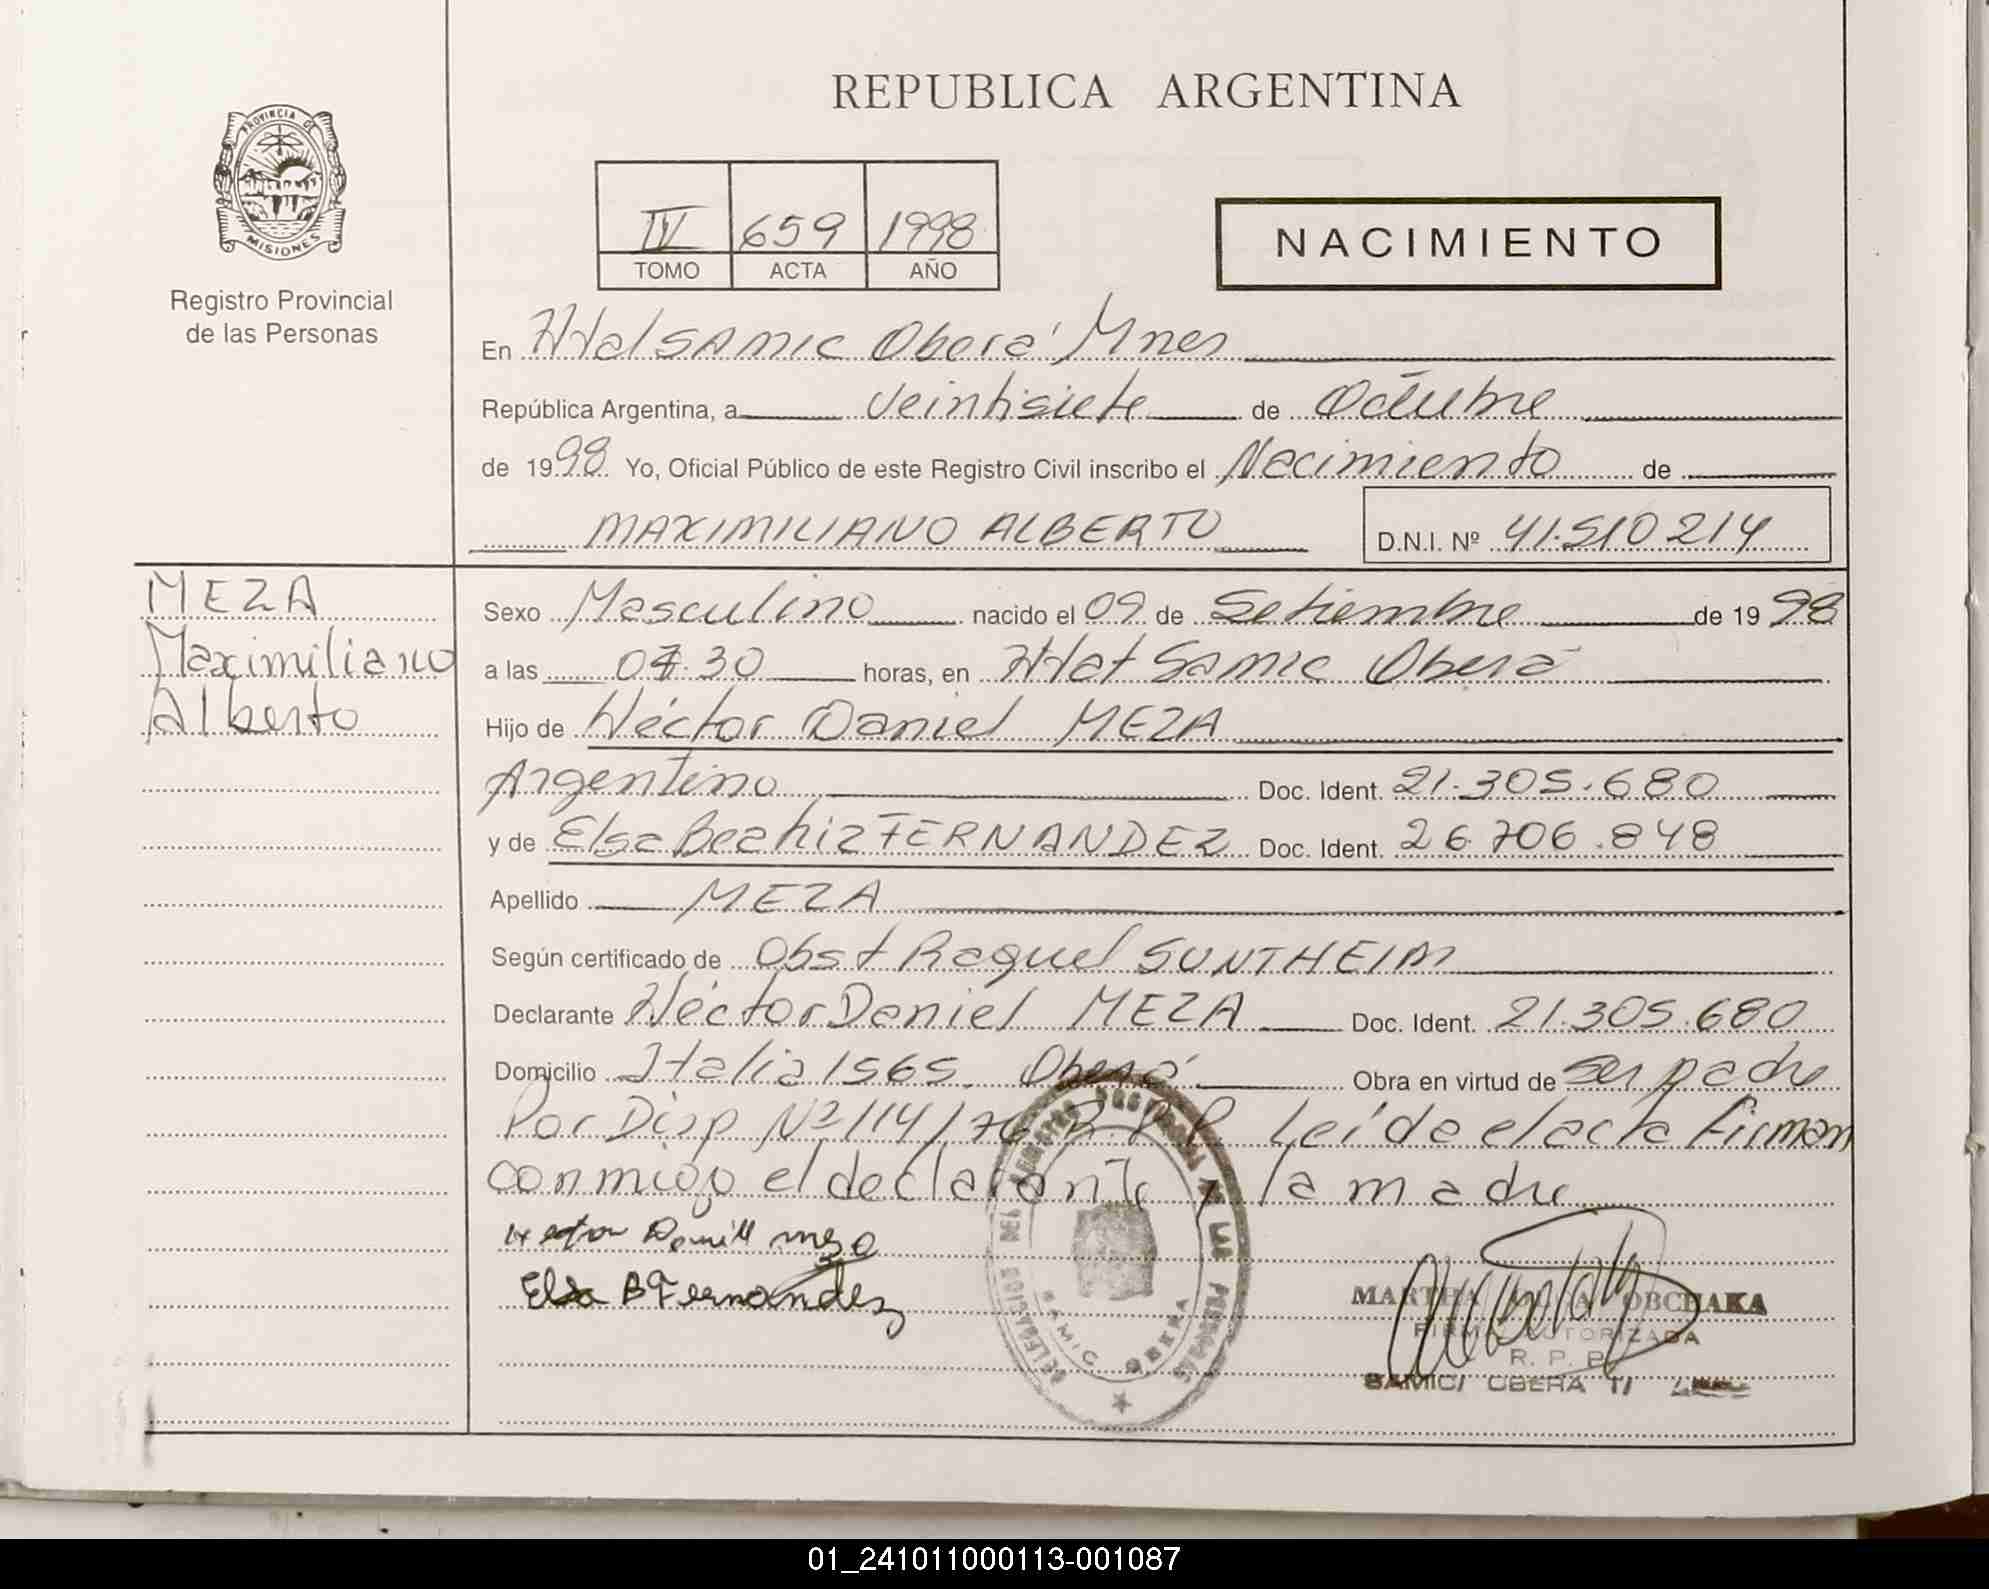 REPUBLICA ARGENTINA
PROVINCIA DE MISIONES
Registro Provincial
de las Personas
IV 659 1998
TOMO ACTA AÑO
NACIMIENTO
En Htal SAMIC Oberá Mnes
República Argentina, a veintisiete de Octubre
de 1998 Yo, Oficial Público de este Registro Civil inscribo el Nacimiento de
MAXIMILIANO ALBERTO D.N.I. Nº 41.510 214
MEZA
Maximiliano
Alberto
Sexo Masculino nacido el 09 de Setiembre de 1998
a las 07.30 horas, en Htal Samic Oberá
Hijo de Héctor Daniel MEZA
Argentino Doc. Ident. 21.305.680
y de Elsa Beatriz FERNANDEZ Doc. Ident. 26.706.848
Apellido MEZA
Según certificado de Obst Raquel SUNTHEIM
Declarante Héctor Daniel MEZA Doc. Ident. 21.305.680
Domicilio Italia 1565. Oberá Obra en virtud de ser padre
Por Disp Nº 114/76 R.P.P. Leída el acta firman
conmigo el declarante y la madre
Hector Daniell meza
Elsa B Fernandez
DELEGACION DEL REGISTRO PROVINCIAL DE LAS PERSONAS
SAMIC OBERA
MARTHA OBCHAKA
FIRMA AUTORIZADA
R. P. P.
SAMIC/ OBERA
01_241011000113-001087